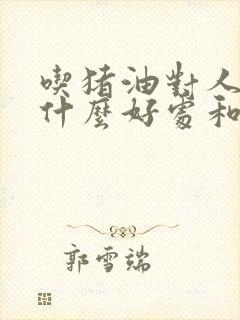 喫猪油對人
什麼好處和
郭雪端